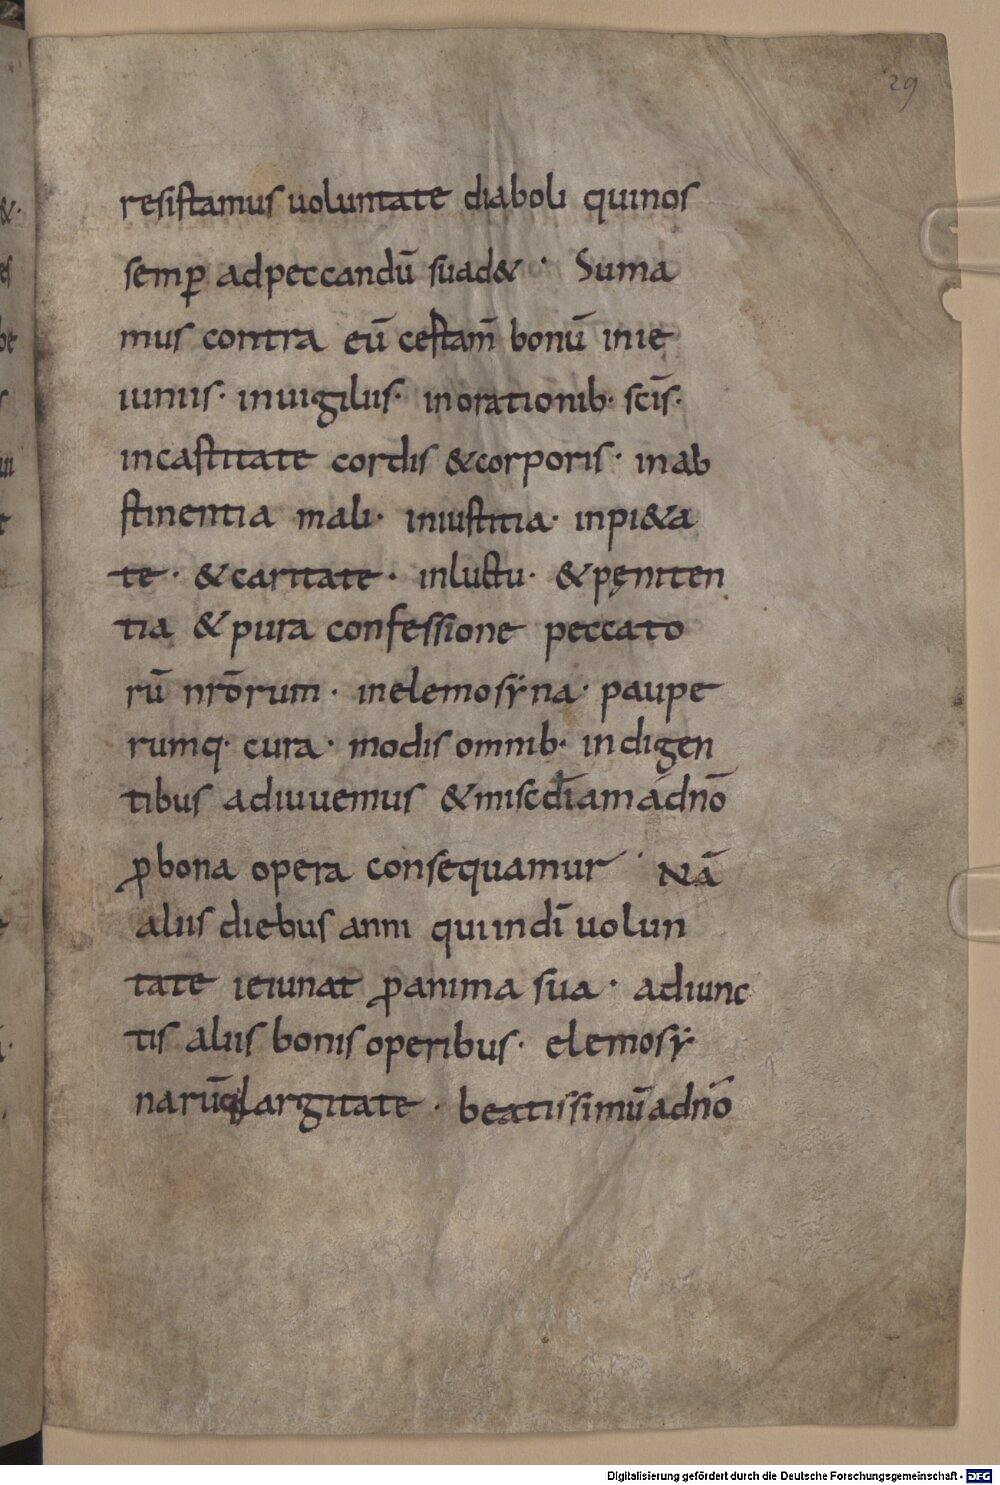 29
resistamus uoluntate diaboli quinos
semꝑ adpeccandū suad& · Suma
mus contra eū cestam̄ bonū inie
iuniis · inuigiliis · inorationib· scīs ·
incastitate cordis &corporis · inab
stinentia mali · iniustitia · inpi&a
te · &caritate · inluctu · &pęniten
tia &pura confessione peccato
rū nrōrum · inelemosẏna · paupe
rumq· cura · modis omnib· indigen
tibus adiuuemus &misc̄diam adnō
ꝓbona opera consequamur · Nā
aliis diebus anni quiindī uolun
tate ieiunat ꝓanima sua · adiunc
tis aliis bonisoperibus · elemosẏ
narūq; largitate · beatissimū adnō
Digitalisierung gefördert durch die Deutsche Forschungsgemeinschaft - DFG